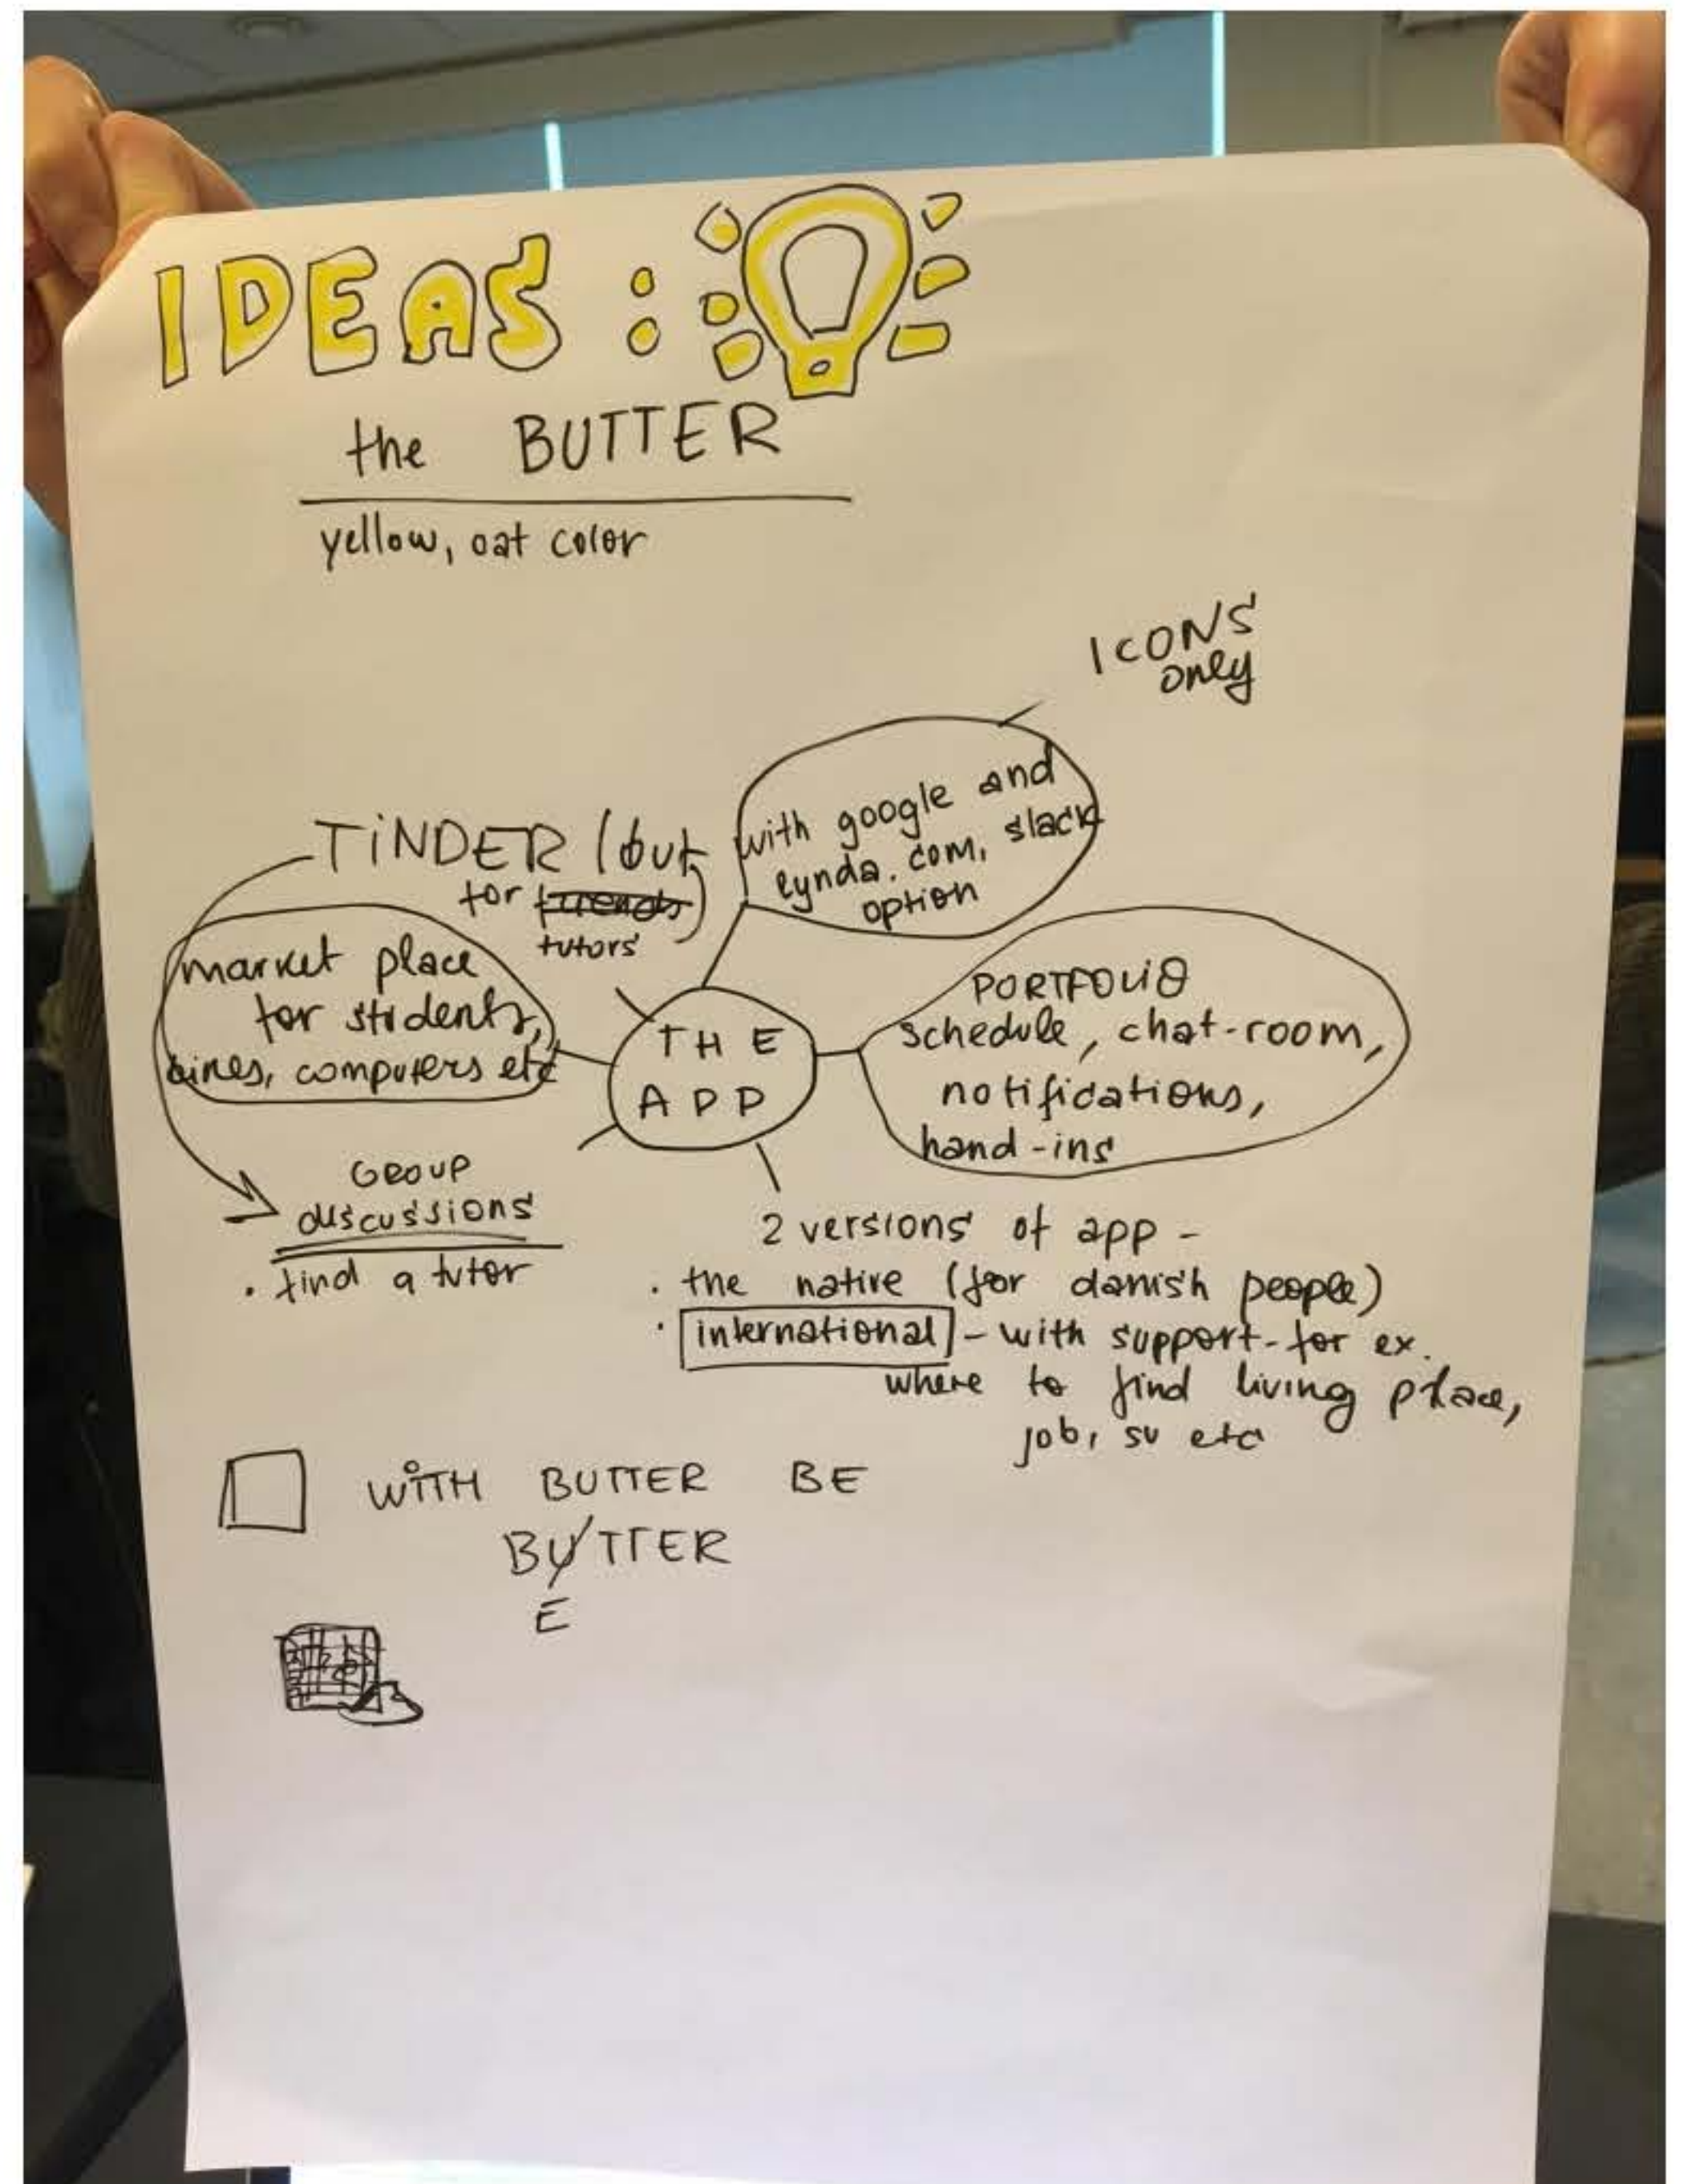 IDEAS:
the BUTTER
yellow, oat color
ICONS
only
with google and
lynda.com, slack
option
TiNDER (but
for friends
tutors)
market place
for students,
bikes, computers etc
THE
APP
PORTFOLIO
schedule, chat-room,
notifications,
hand-ins
GROUP
discussions
. find a tutor
2 versions of app -
. the native (for danish people)
. international - with support - for ex.
where to find living place,
job, su etc
WiTH BUTTER BE
BUTTER
E